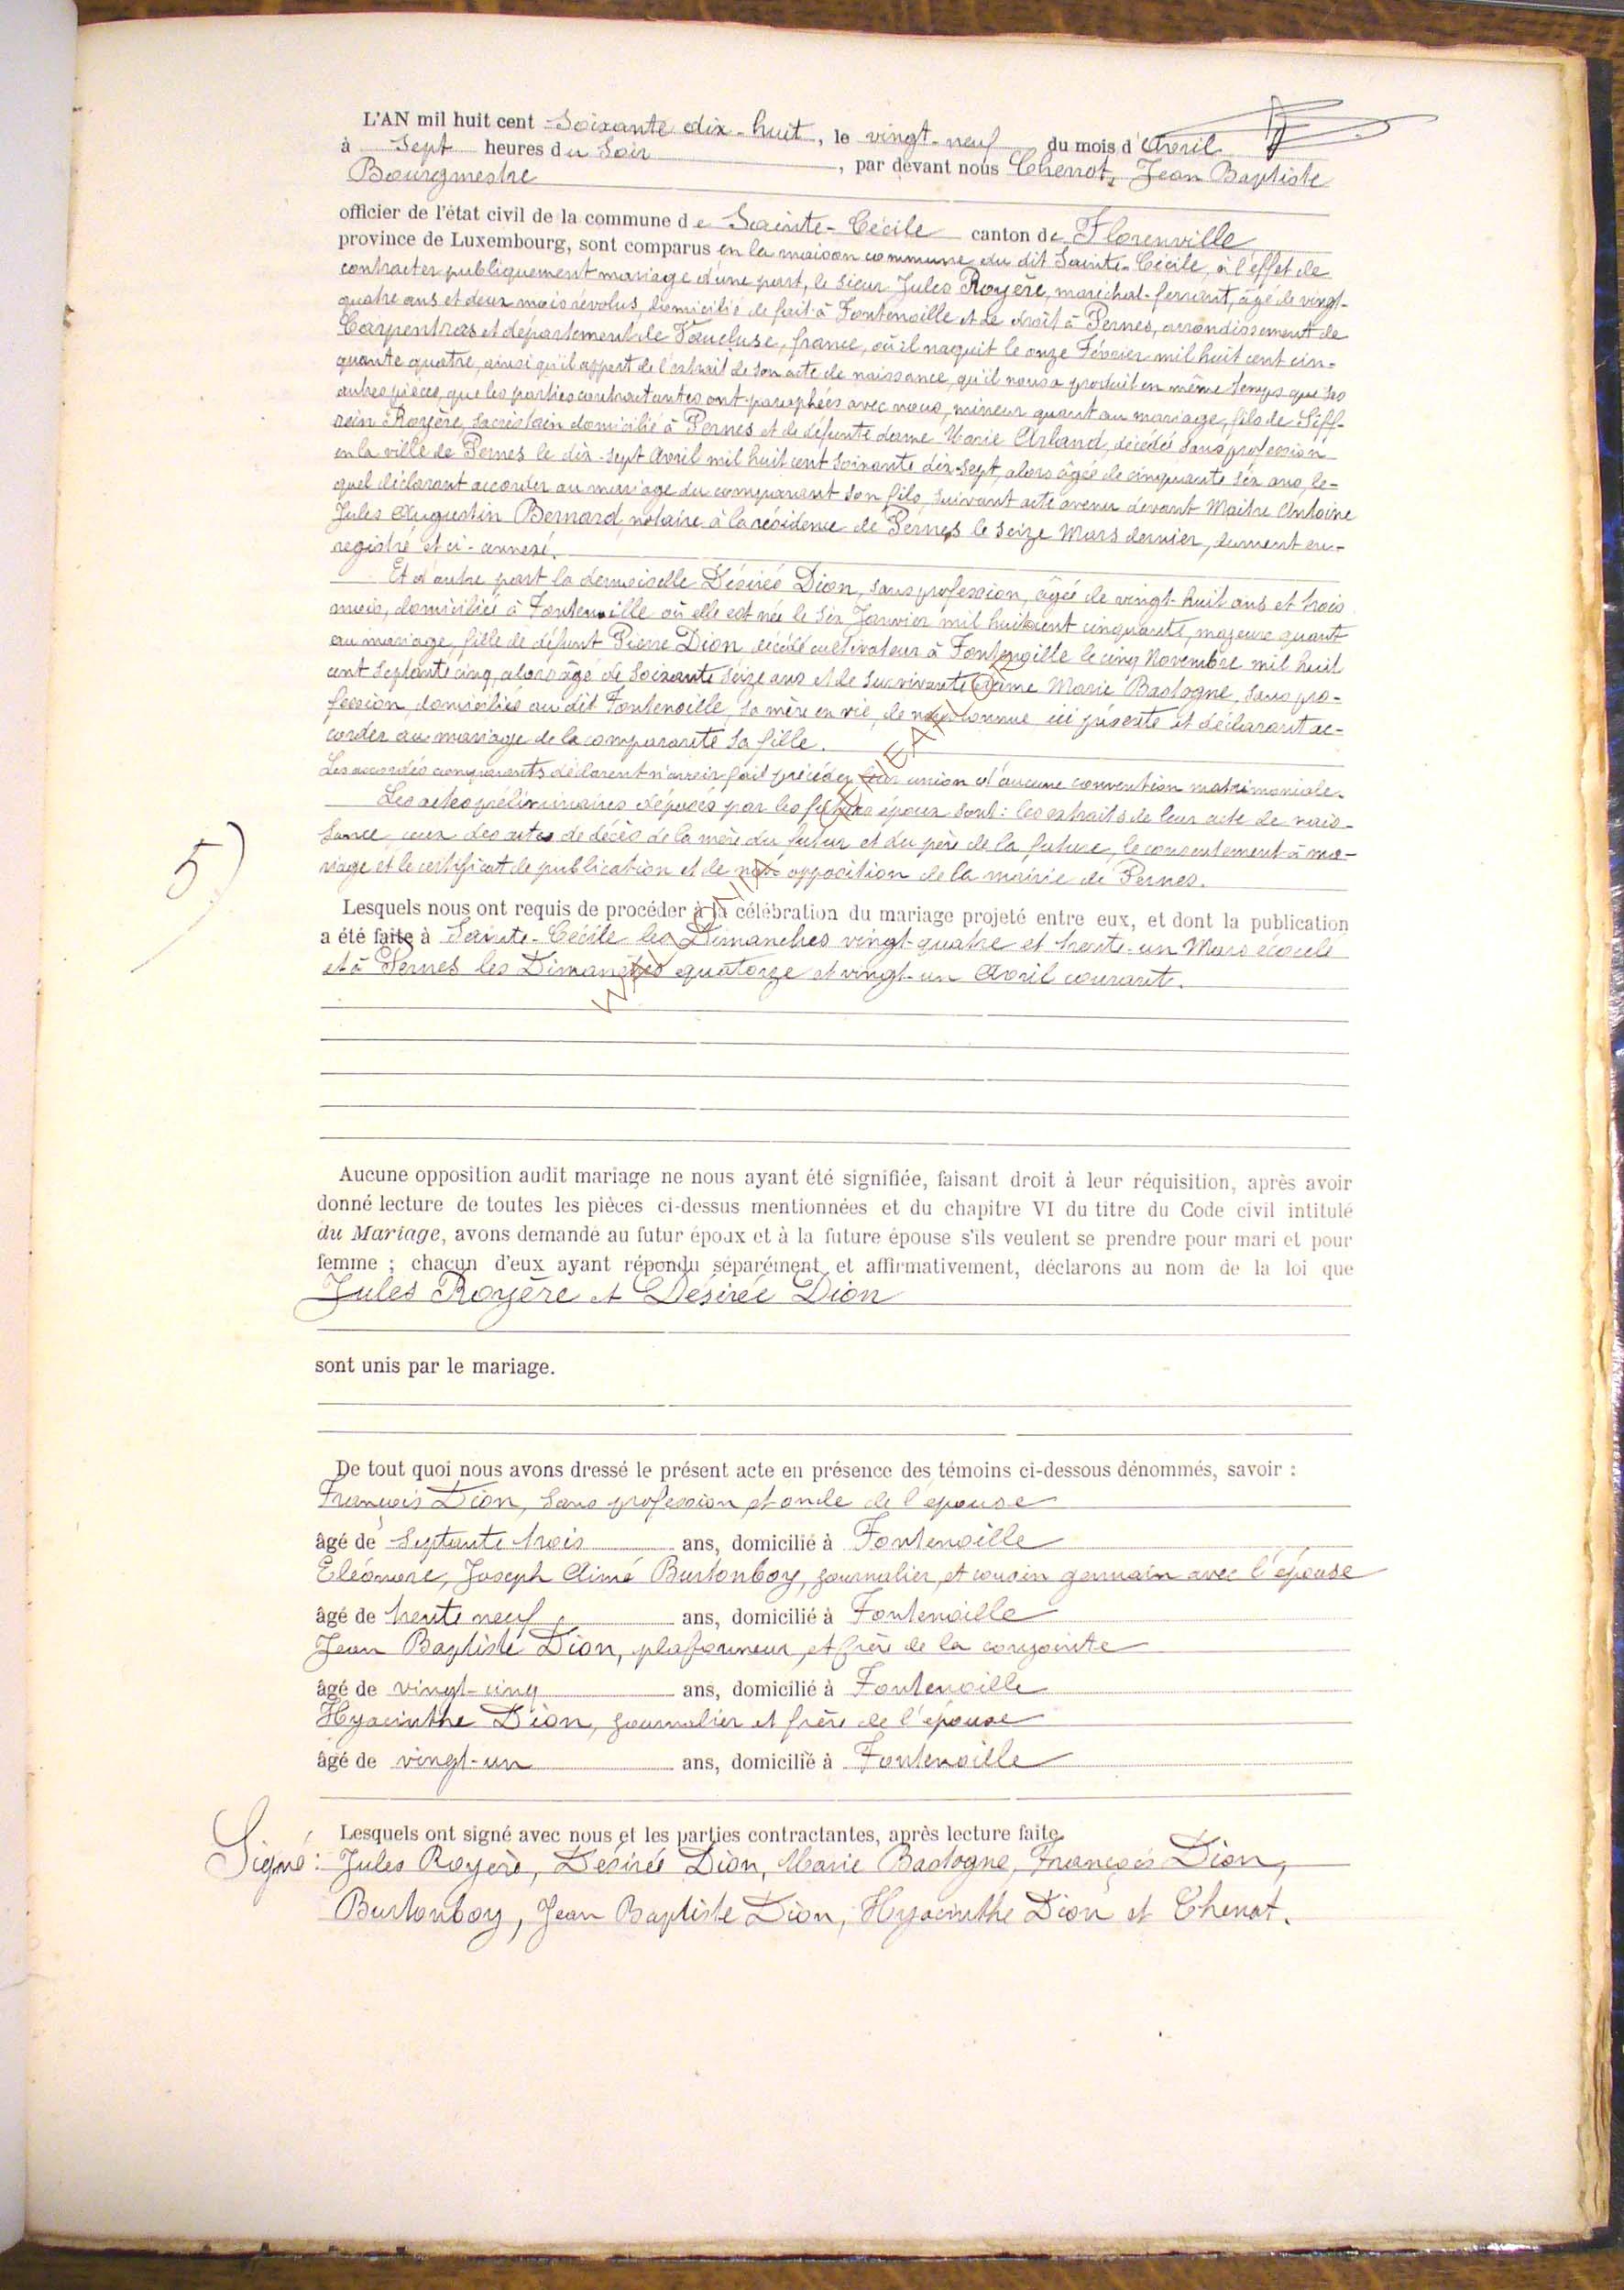 L'AN mil huit cent Soixante dix-huit, le vingt-neuf du mois d'Avril
à Sept heures du Soir, par devant nous Chenot, Jean Baptiste
Bourgmestre
officier de l'état civil de la commune de Sainte-Cécile canton de Florenville
province de Luxembourg, sont comparus en la maison commune du dit Sainte-Cécile, à l'effet de
contracter publiquement mariage d'une part, le sieur Jules Royère, maréchal-ferrant, âgé de vingt-
quatre ans et deux mois révolus, domicilié de fait à Fontenoille et de droit à Pernes, arrondissement de
Carpentras et département de Vaucluse, france, où il naquit le onze Février mil huit cent cin-
quante quatre, ainsi qu'il appert de l'extrait de son acte de naissance, qu'il nous a produit en même temps que ses
autres pièces, que les parties contractantes ont paraphées avec nous, mineur quant au mariage, fils de Siff-
rein Royère, sacristain domicilié à Pernes et de défunte dame Marie Arland, décédé sans profession
en la ville de Pernes le dix-sept Avril mil huit cent soixante dix-sept, alors âgée de cinquante six ans, le-
quel déclarant accorder au mariage du comparant son fils, suivant acte avenu devant Maitre Antoine
Jules Augustin Bernard, notaire à la résidence de Pernes le seize Mars dernier, dument en-
registré et ci-annexé.
Et d'autre part la demoiselle Désirée Dion, sans profession, âgée de vingt-huit ans et trois
mois, domiciliée à Fontenoille où elle est née le six Janvier mil huit cent cinquante, majeure quant
au mariage, fille de défunt Pierre Dion décédé cultivateur à Fontenoille le cinq Novembre mil huit
cent septante cinq, alors âgé de soixante seize ans et de survivante dame Marie Bastogne, sans pro-
fession, domiciliée au dit Fontenoille, sa mère en vie, de nous connue, ici présente et déclarant ac-
corder au mariage de la comparante sa fille.
Les accordés comparants déclarent n'avoir fait précéder leur union d'aucune convention matrimoniale.
Les actes préliminaires déposés par les futurs époux sont : les extraits de leur acte de nais-
sance, ceux des actes de décès de la mère du futur et du père de la future, le consentement à ma-
riage et le certificat de publication et de non opposition de la mairie de Pernes.
5)
Lesquels nous ont requis de procéder à la célébration du mariage projeté entre eux, et dont la publication
a été faite à Sainte-Cécile les Dimanches vingt-quatre et trente-un Mars écoulé
et à Pernes les Dimanches quatorze et vingt-un Avril courant.
Aucune opposition audit mariage ne nous ayant été signifiée, faisant droit à leur réquisition, après avoir
donné lecture de toutes les pièces ci-dessus mentionnées et du chapitre VI du titre du Code civil intitulé
du Mariage, avons demandé au futur époux et à la future épouse s'ils veulent se prendre pour mari et pour
femme ; chacun d'eux ayant répondu séparément et affirmativement, déclarons au nom de la loi que
Jules Royère et Désirée Dion
sont unis par le mariage.
De tout quoi nous avons dressé le présent acte en présence des témoins ci-dessous dénommés, savoir :
François Dion, sans profession et oncle de l'épouse
âgé de septante trois ans, domicilié à Fontenoille
Eléonore, Joseph Aimé Burtonboy, journalier, et cousin germain avec l'épouse
âgé de trente neuf ans, domicilié à Fontenoille
Jean Baptiste Dion, plafonneur, et frère de la conjointe
âgé de vingt-cinq ans, domicilié à Fontenoille
Hyacinthe Dion, journalier et frère de l'épouse
âgé de vingt-un ans, domicilié à Fontenoille
Lesquels ont signé avec nous et les parties contractantes, après lecture faite.
Signé : Jules Royère, Désirée Dion, Marie Bastogne, François Dion,
Burtonboy, Jean Baptiste Dion, Hyacinthe Dion et Chenot.